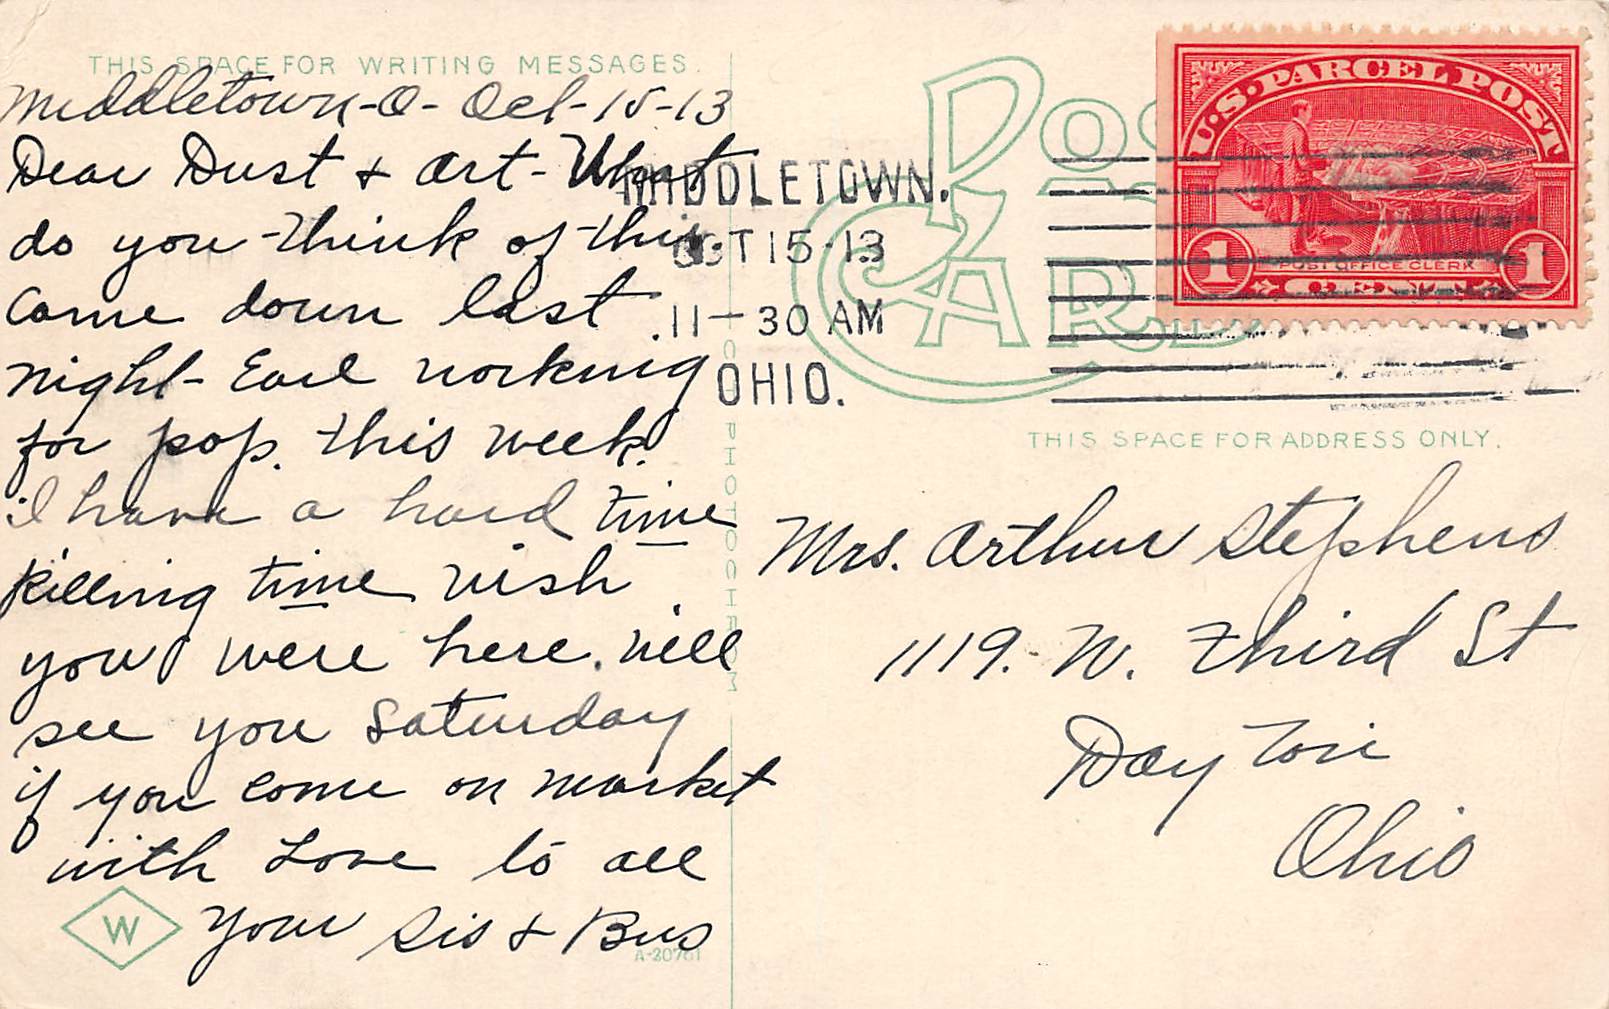 THIS SPACE FOR WRITING MESSAGES.
Middletown-O- Oct-15-13
Dear Dust & Art- What
do you think of this.
Came down last
night- Earl working
for pop. this week.
I have a hard time
killing time wish
you were here. will
see you Saturday
if you come on market
with Love to all
Your Sis & Bus
W
A-30761
PHOTOCHROM
MIDDLETOWN.
OCT 15-13
11-30 AM
OHIO.
POST CARD
U.S. PARCEL POST
POST OFFICE CLERK
1 CENT 1
THIS SPACE FOR ADDRESS ONLY.
Mrs. Arthur Stephens
1119. W. Third St
Dayton
Ohio